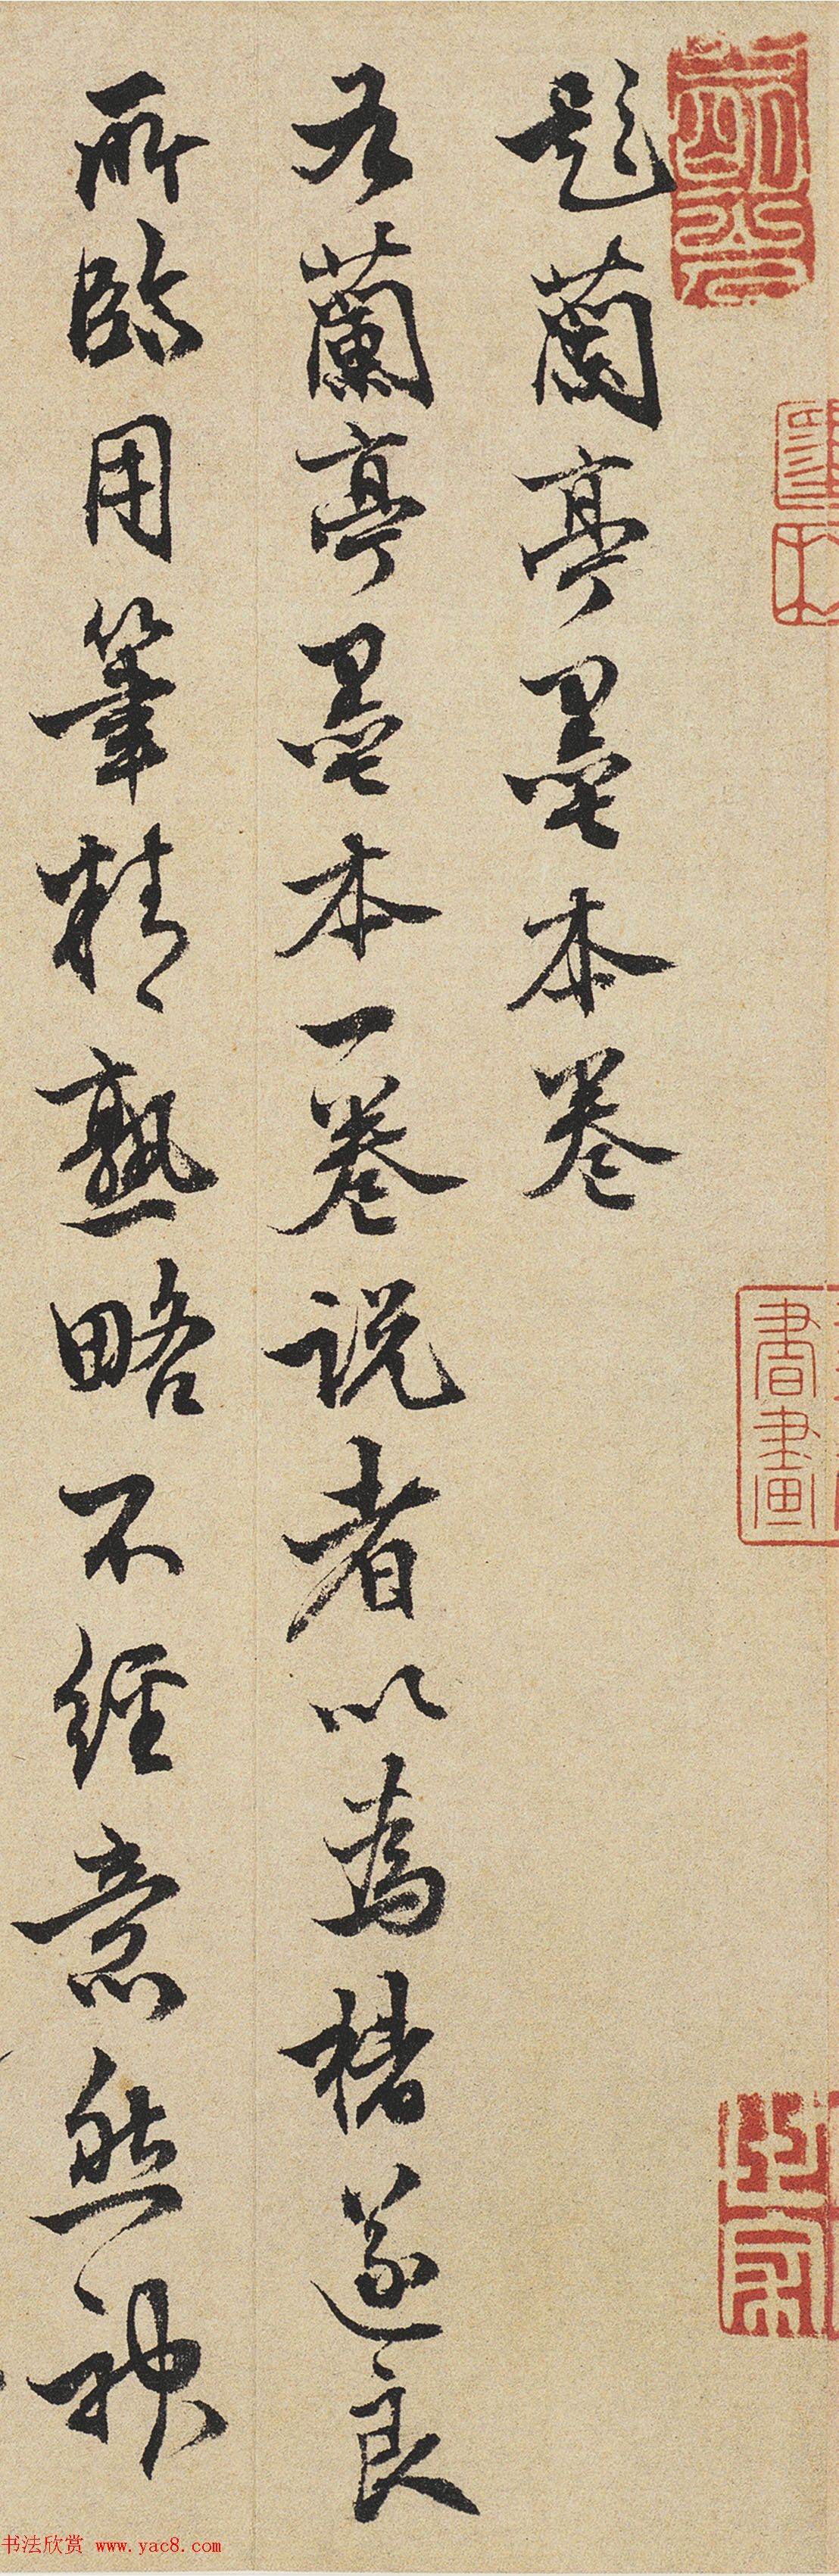 題蘭亭墨本卷
右蘭亭墨本一卷说者以為褚遂良
所臨用筆精熟略不經意然神
書畫
书法欣赏 www.yac8.com